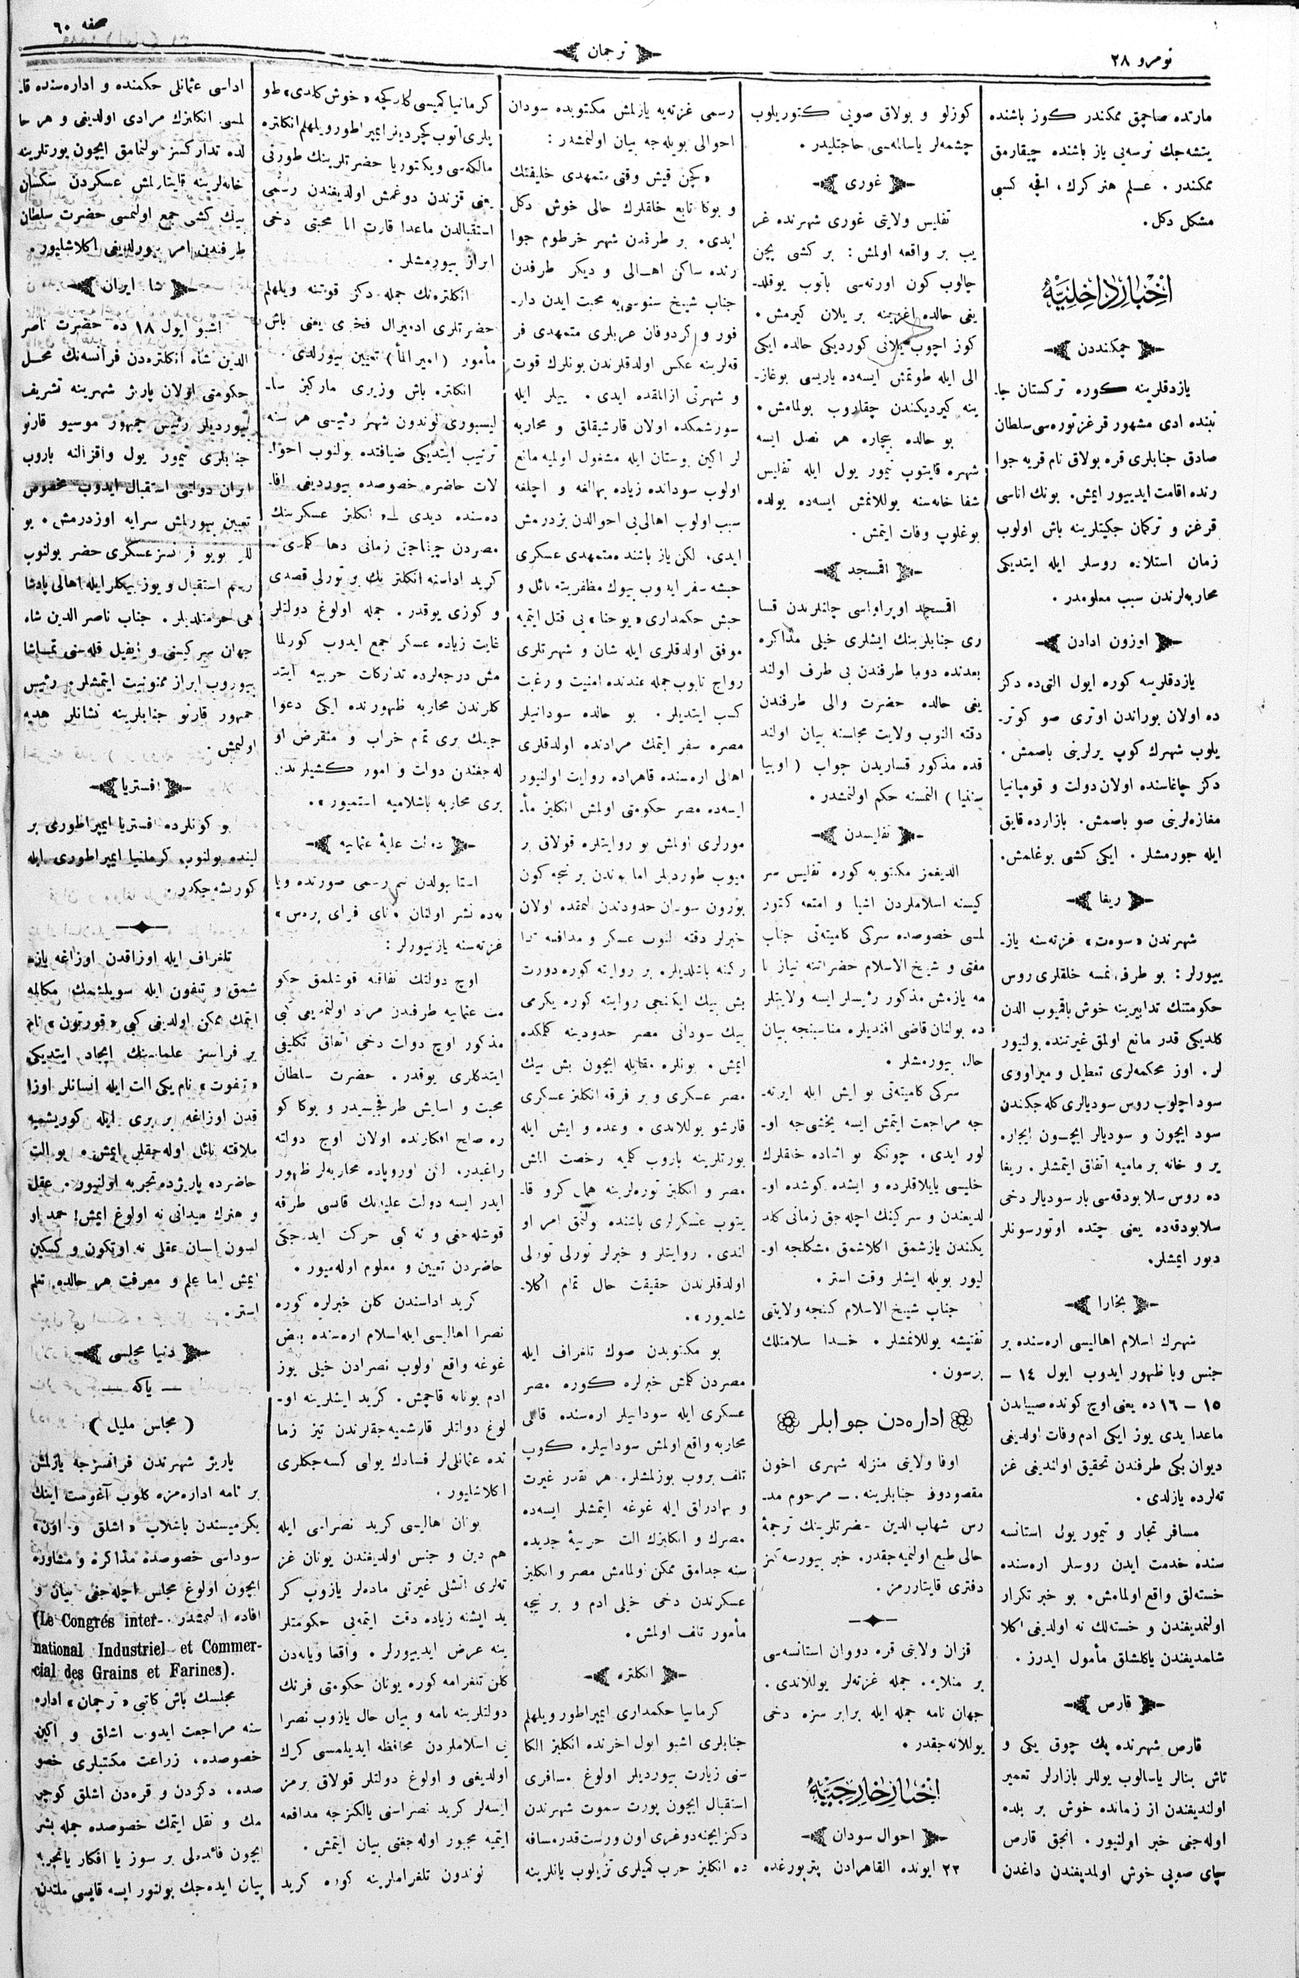 نومرو ٢٨
ترجمان
صحفه ٦٠
مارتده صاچمق ممكندر كوز باشنده
يتشه‌جك نرسه‌یی ياز باشنده چيقارمق
ممكندر . عــلم هنر كرك ، اقچه كسبی
مشكل دكل .
اخبار داخليه
چمكنددن
يازدقلرينه كوره تركستان جا-
نبنده ادی مشهور قرغز توره‌سی سلطان
صادق جنابلری قره بولاق نام قريه جوا
رنده اقامت ايديبور ايمش . بونك اناسی
قرغز و تركمان جكيتلرينه باش اولوب
زمان استلاده روسلر ايله ايتديكی
محاربه‌لرندن سبب معلومدر .
اوزون ادادن
يازدقلرينه كوره ايول التی‌ده دكز
ده اولان بوراندن اوتری صو كوتر-
يلوب شهرك كوپ يرلرينی باصمش .
دكز چاغاسنده اولان دولت و قومپانيا
مغازه‌لرينی صو باصمش . بازارده قايق
ايله جورمشلر . ايكی كشی بوغلمش .
ريغا
شهرندن «سوه‌ت» غزته‌سنه ياز-
ييورلر : بو طرف نمسه خلقلری روس
حكومتنك تدابيرينه خوش باقميوب الدن
كلديكی قدر مانع اولمق غيرتنده بولنيور
لر . اوز محكمه‌لری تعطيل و ميراووی
سود اچلوب روس سوديالری كله‌جكندن
سود ايچون و سوديالر ايچــون ايجاره
ير و خانه برمامیه اتفاق ايتمشلر . ريغا
ده روس سلابودقه‌سی بار سوديالر دخی
سلابودقه‌ده يعنی چتده اوتورسونلر
ديور ايمشلر .
بخارا
شهرك اسلام اهاليسی اره‌سنده بر
جنس وبا ظهور ايدوب ايول ١٤ –
١٥ – ١٦ ده يعنی اوچ كونده صبياندن
ماعدا يدی يوز ايكی ادم وفات اولديغی
ديوان بكی طرفندن تحقيق اولنديغی غز
ته‌لرده يازلدی .
مسافر تجار و تيمور يول استانسه
سنده خدمت ايدن روسلر اره‌سنده
خسته‌لق واقع اولمامش . بو خبر تكرار
اولنمديغندن و خسته‌لك نه اولديغی اكلا
شلمديغندن ياكلشلق مأمول ايدرز .
قارص
قارص شهرنده پك چوق يكی و
تاش بنالر ياسالوب يوللر بازارلر تعمير
اولنديغندن از زمانده خوش بر بلده
اوله‌جغی خبر اولنيور . انجق قارص
چای صويی خوش اولمديغندن داغدن
كوزلو و بولاق صويی كتوريلوب
چشمه‌لر ياسالمه‌سی حاجتليدر .
غوری
تفليس ولايتی غوری شهرنده غر
يب بر واقعه اولمش : بر كشی پچن
چالوب كون اورته‌سی ياتوب يوقلد-
يغی حالده اغزينه بر يلان كيرمش .
كوز اچوب يلانی كورديكی حالده ايكی
الی ايله طوتمش ايسه‌ده ياريسی بوغاز-
ينه كيرديكندن چقاروب بولمامش .
بو حالده بيچاره هر نصل ايسه
شهره قايتوب تيمور يول ايله تفليس
شفا خانه‌سنه يوللانمش ايسه‌ده يولده
بوغلوب وفات ايتمش .
اقمسجد
اقمسجد اوپراواسی چانلرندن قسا
ری جنابلرينك ايشلری خيلی مذاكره
بعدنده دوما طرفندن بی طرف اولند
يغی حالده حضرت والی طرفندن
دقته النوب ولايت مجلسنه بيان اولند
قده مذكور قساريدن جواب ( اوبيا
سنتيا ) النمسنه حكم اولنمشدر .
تفليسدن
الديغمز مكتوبه كوره تفليس سر
كيسنه اسلاملردن اشيا و امتعه كتور
لمسی خصوصده سركی كاميته‌تی جناب
مفتی و شيخ الاسلام حضراتنه نياز نا
مه يازمش مذكور رئيسلر ايسه ولايتلر
ده بولنان قاضی افنديلره مناسبنجه بيان
حال بيورمشلر .
سركی كاميته‌تی بو ايش ايله ايرته-
جه مراجعت ايتمش ايسه يخشی‌جه او-
لور ايدی . چونكه بو اثناده خلقلرك
خليسی يايلاقلرده و ايشده كوشده او-
لديغندن و سركينك اچله‌جق زمانی كلد
يكندن يازشمق اكلاشمق مشكلجه او-
ليور بويله ايشلر وقت استر .
جناب شيخ الاسلام كنجه ولايتی
تفتيشه يوللانمشلر . خــدا سلامتلك
برسون .
اداره‌دن جوابلر
اوفا ولايتی منزله شهری اخون
مقصودوف جنابلرينه . — مرحوم مد-
رس شهاب الدين حضرتلرينك ترجمهٔ
حالی طبع اولنميه‌جقدر . خبر بيورسه‌كز
دفتری قايتاررمز .
قزان ولايتی قره دووان استانسه‌سی
بر منلايه . جمله غزته‌لر يوللاندی .
جهان نامه جمله ايله برابر سزه دخی
يوللانه‌جقدر .
اخبار خارجيه
احوال سودان
٢٣ ايونده القاهرادن پتربورغده
رسمی غزته‌يه يازلمش مكتوبده سودان
احوالی بويله‌جه بيان اولنمشدر :
« كچن قيش وقتی متمهدی خليفتك
و بوكا تابع خلقلرك حالی خوش دكل
ايدی . بر طرفدن شهر خرطوم جوا
رنده ساكن اهــالی و ديكر طرفدن
جناب شيخ سنوسی‌يه محبت ايدن دار-
فور و كردوفان عربلری متمهدی فر
قه‌لرينه عكس اولدقلرندن بونلرك قوت
و شهرتی ازالمقده ايدی . ييللر ايله
سورشمكده اولان قارشيقلق و محاربه
لر اكين بوستان ايله مشغول اولميه مانع
اولوب سودانده زياده بهالغه و اچلغه
سبب اولوب اهالی‌یی احوالدن بزدرمش
ايدی . لكن ياز باشنده متمهدی عسكری
حبشه سفر ايدوب بيوك مظفريته نائل و
حبش حكمداری «يوحنا» یی قتل ايتميه
موفق اولدقلری ايله شان و شهرتلری
رواج تابوب جمله عندنده امنيت و رغبت
كسب ايتديلر . بو حالده سودانيلر
مصره سفر ايتمك مرادنده اولدقلری
اهالی اره‌سنده قاهراده روايت اولنيور
ايسه‌ده مصر حكومتی اولمش انكليز مأ-
مورلری اولمش بو روايتلره قولاق بر
ميوب طورديلر اما بوندن بر نيجه كون
بورون سودان حدودندن النمقده اولان
خبرلر دقته النوب عسكر و مدافعه تدا
ركنه باشلديلر . بر روايته كوره دورت
بش بيك ايكنجی روايته كوره يكرمی
بيك سودانی مصر حدودينه كلمكده
ايمش . بونلره مقابله ايچون بش بيك
مصر عسكری و بر فرقه انكليز عسكری
قارشو يوللاندی . وعده و ايش ايله
يورتلرينه باروب كلميه رخصت المش
مصر و انكليز توره‌لرينه همان كرو قا-
يتوب عسكرلری باشنده بولنمق امر او
لندی . روايتلر و خبرلر تورلی تورلی
اولدقلرندن حقيقت حال تمام اكلا-
شلميور » .
بو مكتوبدن صوك تلغراف ايله
مصردن كلمش خبرلره كوره مصر
عسكری ايله سودانيلر اره‌سنده قانلی
محاربه واقع اولمش سودانيلره كوپ
تلف بروب بوزلمشلر . هر نقدر غيرت
و بهادرلق ايله غوغه ايتمشلر ايسه‌ده
مصرك و انكليزك الت حربيهٔ جديده
سنه چدامق ممكن اولمامش مصر و انكليز
عسكرندن دخی خيلی ادم و بر نيجه
مأمور تلف اولمش .
انكلتره
كرمانيا حكمداری ايمپراطور ويلهلم
جنابلری اشبو ايول اخرنده انكليز الكا
سنی زيارت بيورديلر اولوغ مسافری
استقبال ايچون پورت سموت شهرندن
دكز ايچنه دوغری اون ويرست قدر مسافه
ده انكليز حرب كميلری تزيلوب يانلرينه
كرمانيا كميسی كلركچه «خوش كلدی» طو
پلری اتوب كچرديلر ايمپراطور ويلهلم انكلتره
مالكه‌سی ويكتوريا حضرتلرينك طورنی
يعنی قزندن دوغمش اولديغندن رسمی
استقبالدن ماعدا قارت انا محبتی دخی
ابراز بيورمشلر .
انكلتره‌نك جمله دكز قوتنه ويلهلم
حضرتلری ادميرال فخری يعنی باش
مأمور ( اميرالما ) تعيين بيورلدی .
انكلتره باش وزيری ماركيز سا-
ليسبوری لوندون شهر رئيسی هر سنه
ترتيب ايتديكی ضيافتده بولنوب احوا-
لات حاضره خصوصده بيورديغی افا-
ده‌سنده ديدی كه انكليز عسكرينك
مصردن چقاجق زمانی دها كلمدی .
كريد اداسنه انكلتره‌نك بر تورلی قصدی
و كوزی يوقدر . جمله اولوغ دولتلر
غايت زياده عسكر جمع ايدوب كورلما
مش درجه‌لرده تداركات حربيه ايتد
كلرندن محاربه ظهورنده ايكی دعوا
جينك بری تمام خراب و منقرض او
له‌جغندن دولت و امور كشيلرندن
بری محاربه باشلاميه استميور » .
دولت عليهٔ عثمانيه
استانبولدن نيم رسمی صورتده ويا
نه‌ده نشر اولنان « نای فرای پرس »
غزته‌سنه يازييورلر :
اوچ دولتك اتفاقنه قوشلمق حكو
مت عثمانيه طرفندن مراد اولنمديغی كبی
مذكور اوچ دولت دخی اتفاق تكليفی
ايتدكلری يوقدر . حضرت سلطان
محبت و اسايش طرفجيسيدر و بوكا كو
ره صلح افكارنده اولان اوچ دولته
راغبدر . لكن اوروپاده محاربه‌لر ظهور
ايدر ايسه دولت عليه‌نك قايسی طرفه
قوشله‌جغی و نه كبی حركت ايده‌جكی
حاضردن تعيين و معلوم اوله‌ميور .
كريد اداسندن كلان خبرلره كوره
نصرا اهاليسی ايله اسلام اره‌سنده بعض
غوغه واقع اولوب نصرادن خيلی يوز
ادم يونانه قاچمش . كريد ايشلرينه او-
لوغ دولتلر قارشميه‌جقلرندن تيز زما
نده عثمانلی‌لر فسادك يولی كسه‌جكلری
اكلاشليور .
يونان اهاليسی كريد نصراسی ايله
هم دين و جنس اولديغندن يونان غز
ته‌لری اتشلی غيرتی ماده‌لر يازوب كر
يد ايشنه زياده دقت ايتمه‌یی حكومتلر
ينه عرض ايدييورلر . واقعا ويانه‌دن
كلن تلغرامه كوره يونان حكومتی فرنك
دولتلرينه نامه و بيان حال يازوب نصرا
یی اسلاملردن محافظه ايديلمسی كرك
اولديغی و اولوغ دولتلر قولاق برمز
ايسه‌لر كريد نصراسنی يالكزجه مدافعه
ايتميه مجبور اوله‌جغنی بيان ايتمش .
لوندون تلغراملرينه كوره كريد
اداسی عثمانلی حكمنده و اداره‌سنده قا-
لمسی انكلتزك مرادی اولديغی و هر حا
لده تداركسز بولنمامق ايچون يورتلرينه
خانه‌لرينه قايتارلمش عسكردن سكسان
بيك كشی جمع اولنمسی حضرت سلطان
طرفندن امر بيورلديغی اكلاشليور .
شاه ايران
اشبو ايول ١٨ ده حضرت ناصر
الدين شاه انكلتره‌دن فرانسه‌نك محــل
حكومتی اولان پاريژ شهرينه تشريف
بيورديلر رئيس جمهور موسيو قارنو
جنابلری تيمور يول واقزالنه باروب
ايران دولتی استقبال ايدوب مخصوص
تعيين بيورلمش سرايه اوزدرمش . يو
للر بويو فرانسز عسكری حضر بولنوب
رسم استقبال و يوز بيكلر ايله اهالی پادشا
هی حرمتلديلر . جناب ناصر الدين شاه
جهان سركيسنی و ايفيل قله‌سنی تمــاشا
بيوروب ابراز ممنونيت ايتمشلر . رئيس
جمهور قارنو جنابلرينه نشانلر هديه
اولنمش .
افستريا
بو كونلرده افستريا ايمپراطوری بر
لينده بولنوب كرمانيا ايمپراطوری ايله
كوريشه‌جكدر .
تلغراف ايله اوزاقدن اوزاغه يازه
شمق و تيلفون ايله سويلشمك مكالمه
ايتمك ممكن اولديغی كبی «قورتون» نام
بر فرانسز علماسنك ايجاد ايتديكی
«تيفوت» نام يكی الت ايله انسانلر اوزا
قدن اوزاغه بر بری ايله كوريشميه
ملاقته نائل اوله‌جقلر ايمش . بو الت
حاضرده پاريژده تجربه اولنيور . عقل
و هنرك ميدانی نه اولوغ ايمش ! حمد او
لسون انسان عقلی نه اوتكون و كسكين
ايمش اما علم و معرفت هر حالده تعلم
استر .
دنيا مجلسی
— ياكه —
( مجلس ملیل )
پاريژ شهرندن فرانسزجه يازلمش
بر نامه اداره‌مزه كلوب آغوست اينك
يكرميسندن باشلاب «اشلق و اون»
سوداسی خصوصده مذاكره و مشاوره
ايچون اولوغ مجلس اچله‌جغی بيان و
افاده اولنمشدر . (Le Congrés inter-
national Industriel et Commer-
cial des Grains et Farines).
مجلسك باش كاتبی «ترجمان» اداره
سنه مراجعت ايدوب اشلق و اكين
خصوصده ، زراعت مكتبلری خصو
صده ، دكزدن و قره‌دن اشلق كوچر
مك و نقل ايتمك خصوصده جمله بشر
ايچون فائده‌لی بر سوز يا افكار يا تجربه
بيان ايده‌جك بولنور ايسه قايسی ملتدن